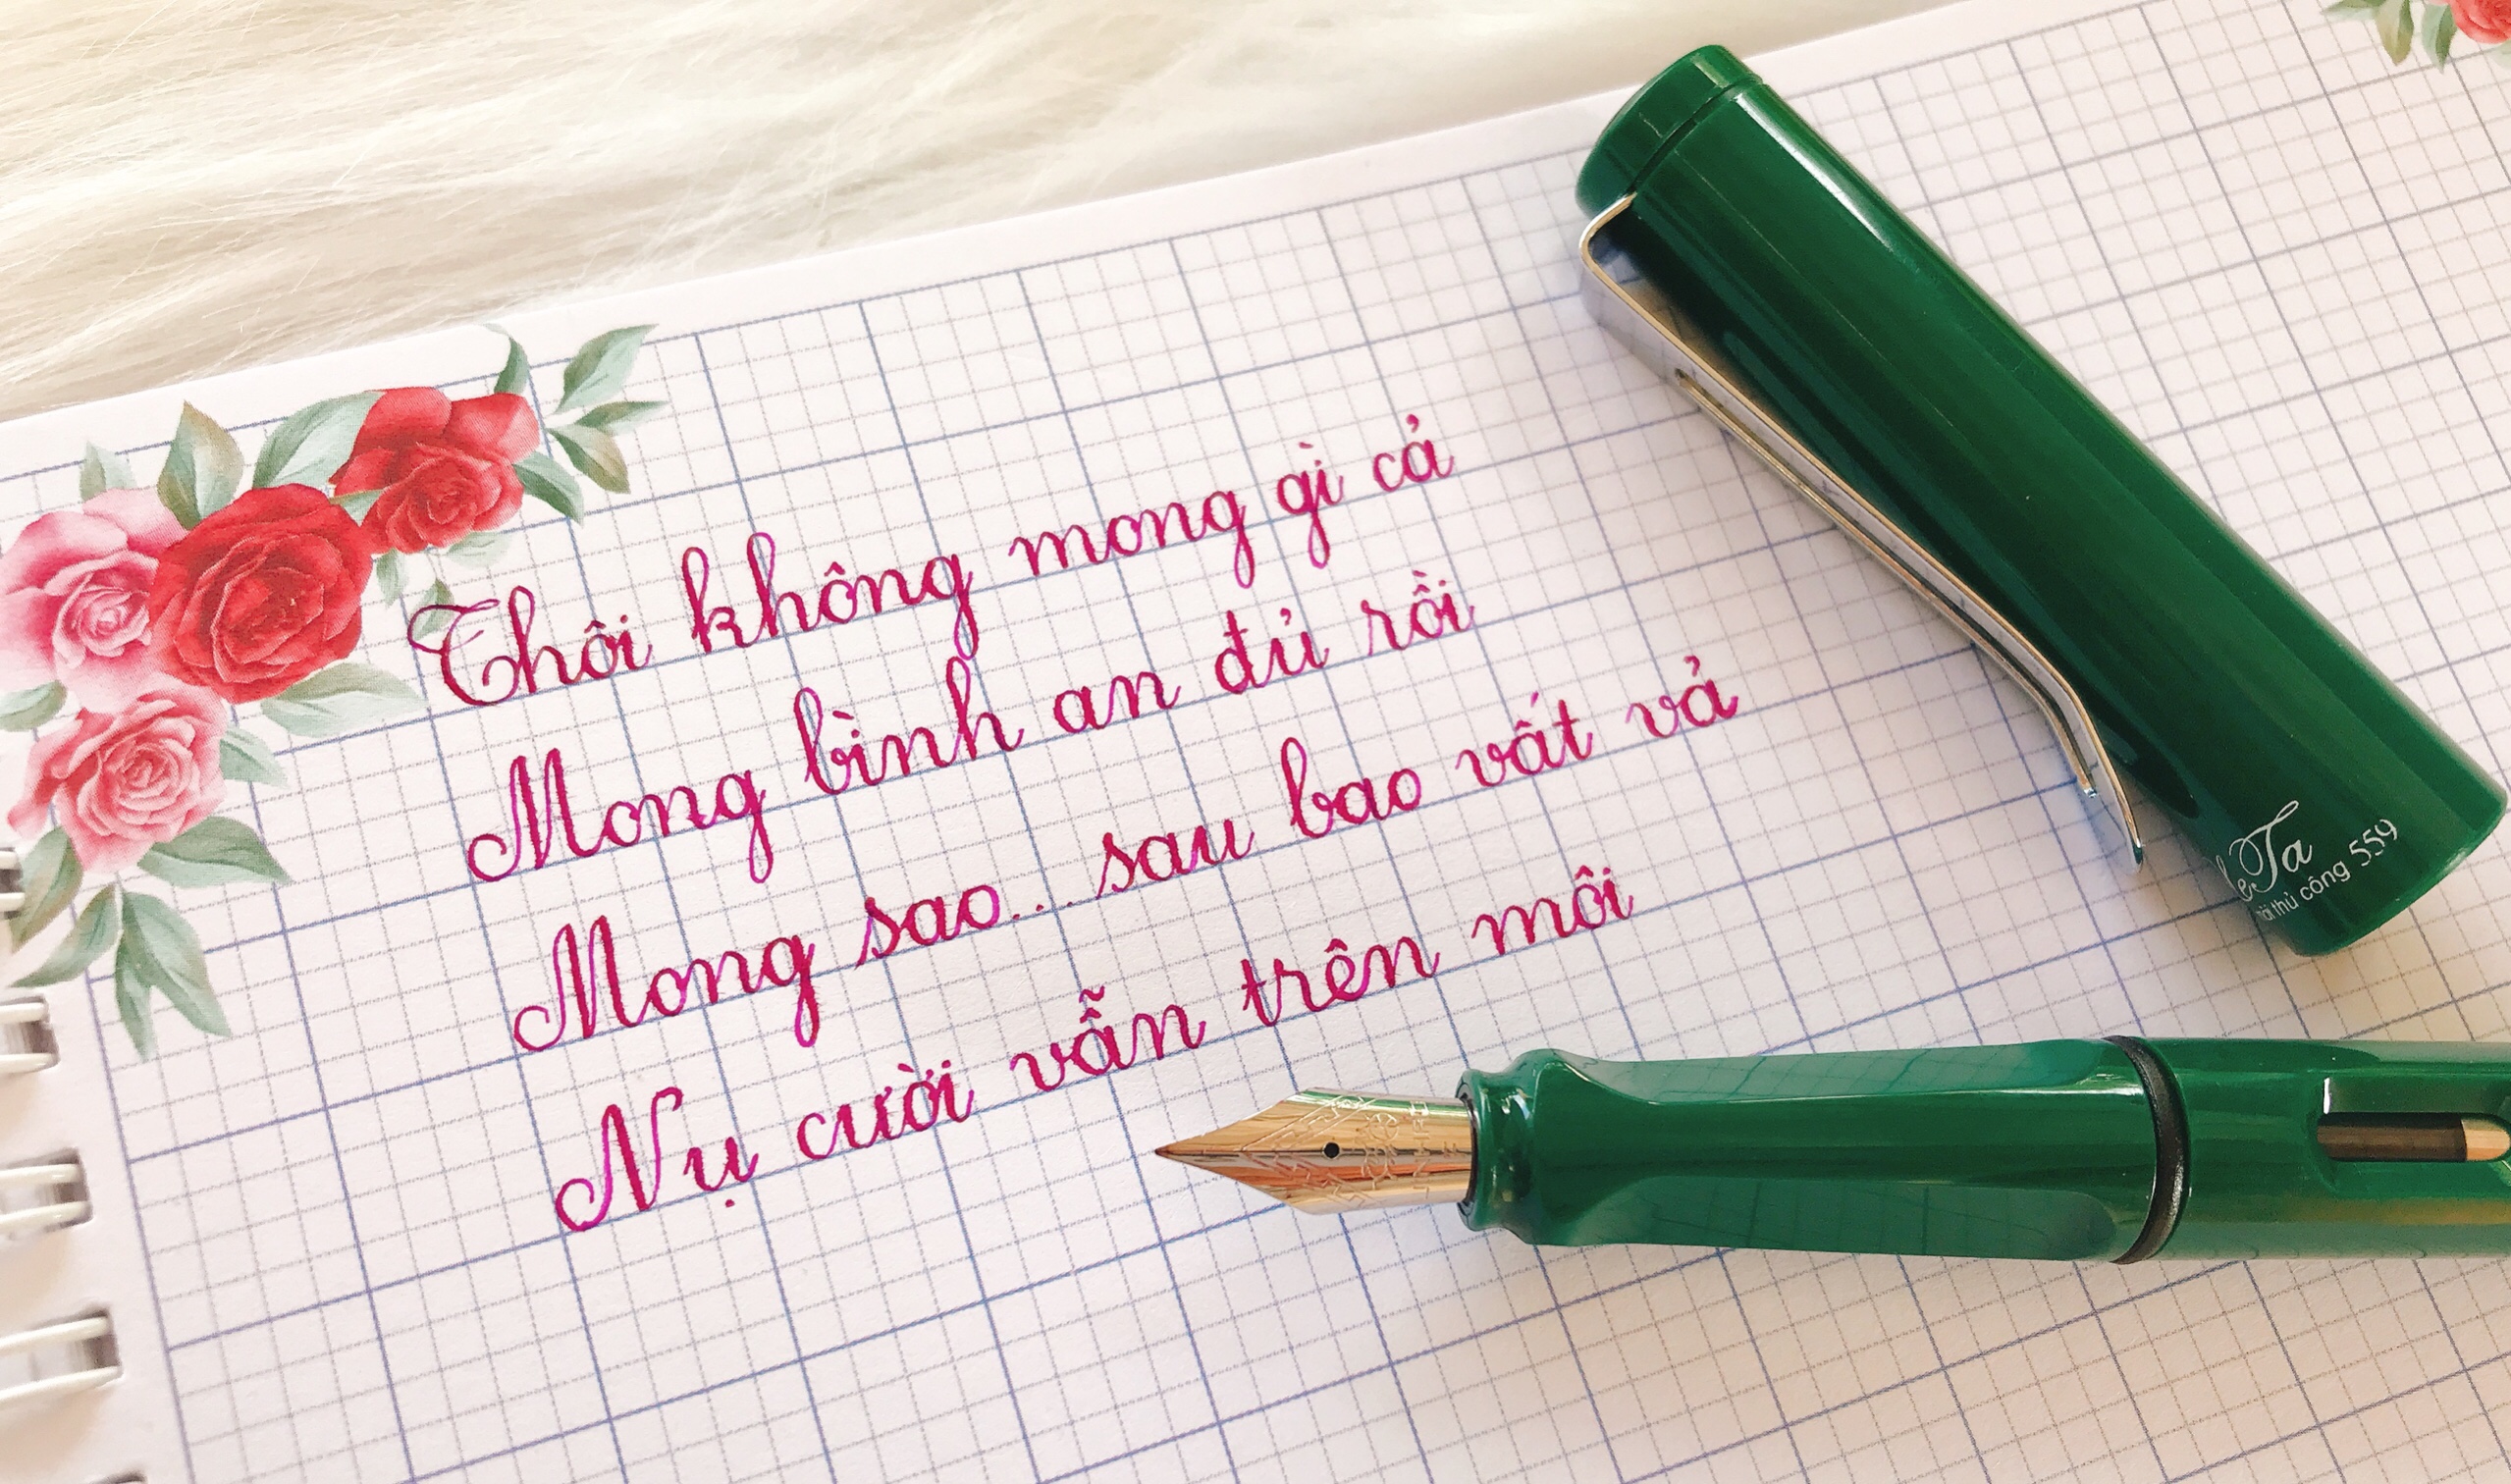 Thôi không mong gì cả
Mong bình an đủ rồi
Mong sao... sau bao vất vả
Nụ cười vẫn trên môi
Ta
thủ công 559